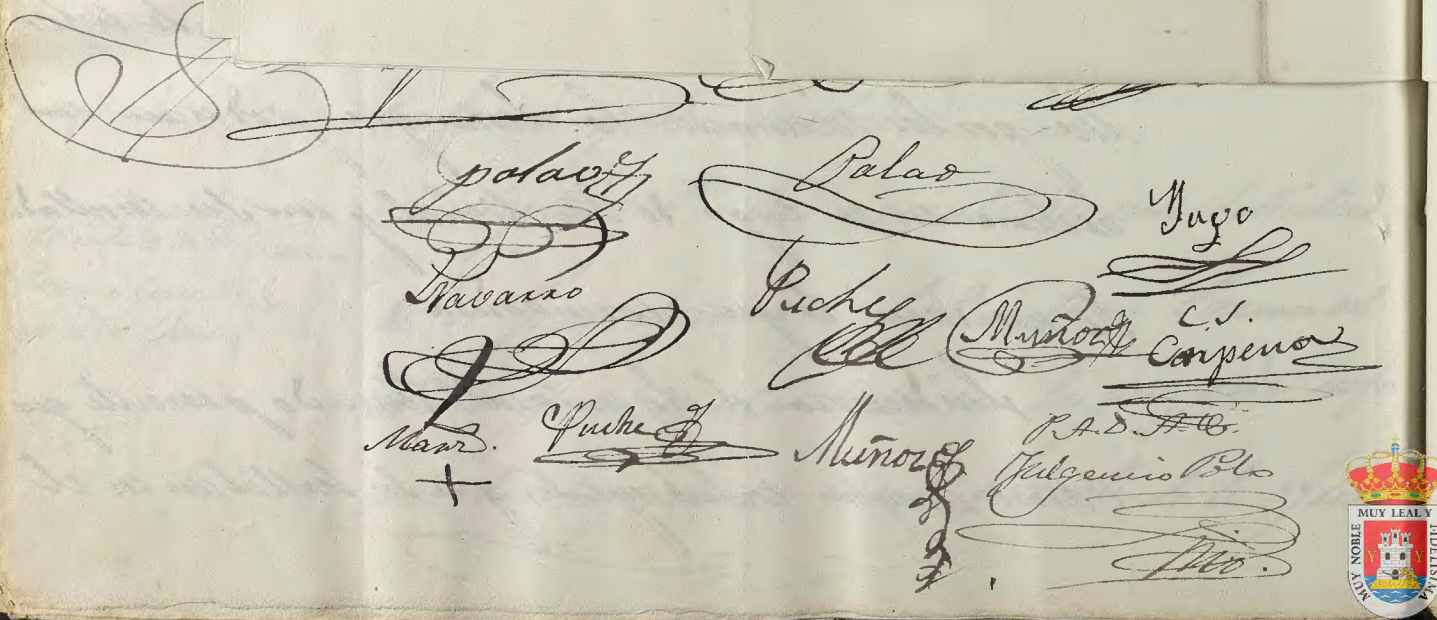 Palao Palao Yago
Navarro Puche Muñoz C. J. Carpena
Puche Muñoz P. A. D. A. C.
Fulgencio Polo
Srio.
MUY NOBLE MUY LEAL Y FIDELISIMA